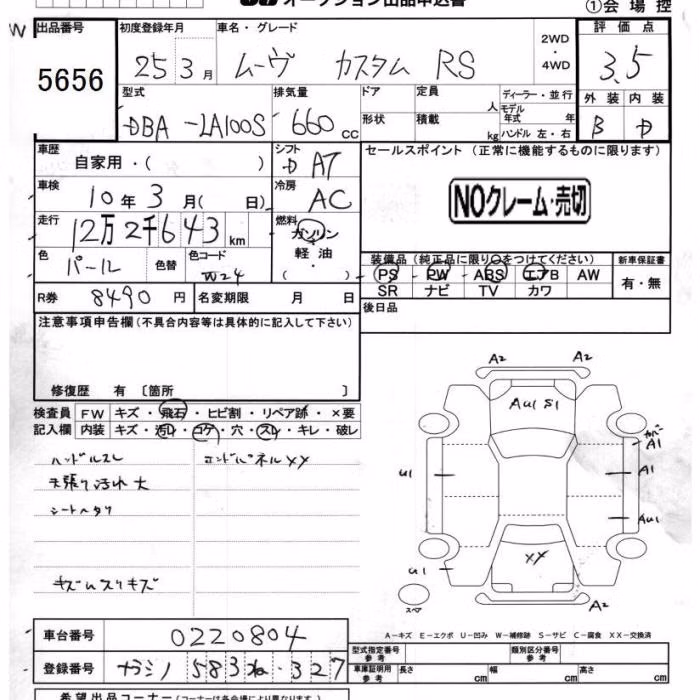 オークション出品申込書
①会場控
出品番号 初度登録年月 車名・グレード 2WD ・ 4WD 評価点
5656 25 3月 ムーヴ カスタム RS 3.5
型式 排気量 ドア 定員 人 ディーラー・並行 外装 内装
DBA-LA100S 660cc 形状 積載 kg モデル年式 年 ハンドル 左・右 B D
車歴 自家用・( ) シフト D AT セールスポイント (正常に機能するものに限ります)
車検 10年3月( 日) 冷房 AC NOクレーム・売切
走行 12万2千643km 燃料 ガソリン 軽油 ( )
装備品(純正品に限り○をつけてください) 新車保証書
色 パール 色替 色コード W24 PS PW ABS エアB AW 有・無
SR ナビ TV カワ
R券 8490円 名変期限 月 日 後日品
注意事項申告欄(不具合内容等は具体的に記入して下さい)
修復歴 有〔箇所 〕
検査員 FW キズ・飛石・ヒビ割・リペア跡・×要
記入欄 内装 キズ・汚れ・コゲ・穴・スレ・キレ・破レ
ハンドルスレ エンドパネルXX
天張り汚れ大
シートヘタリ
キズ
A2 A2
AU1 S1
カバー A1
U1 A1
AU1
XX
U1
スペア A2
A-キズ E-エクボ U-凹み W-補修跡 S-サビ C-腐食 XX-交換済
車台番号 0220804
型式指定番号 参考 類別区分番号 参考
登録番号 ナラシノ 583 ね ・327
車庫証明用 参考 長さ cm 幅 cm 高さ cm
希望出品コーナー